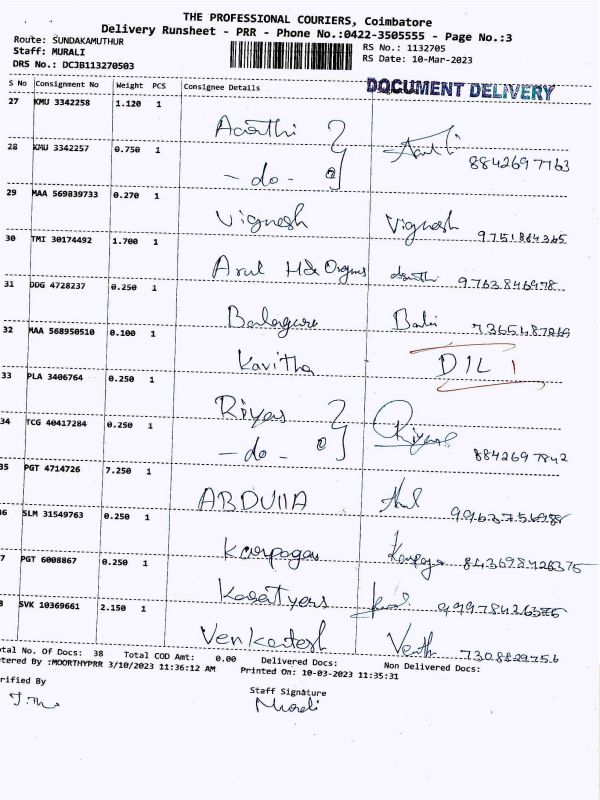 THE PROFESSIONAL COURIERS, Coimbatore
Delivery Runsheet - PRR - Phone No.:0422-3505555 - Page No.:3
Route: SUNDAKAMUTHUR
Staff: MURALI
DRS No.: DCJB113270503
RS No.: 1132705
RS Date: 10-Mar-2023
S No Consignment No Weight PCS Consignee Details
DOCUMENT DELIVERY
27 KMU 3342258 1.120 1
28 KMU 3342257 0.750 1
- do -
8842697763
29 MAA 569839733 0.270 1
Vignesh Vignesh
30 TMI 30174492 1.700 1
Arul
9763846978
31 DDG 4728237 0.250 1
32 MAA 568950510 0.100 1
Kavitha
33 PLA 3406764 0.250 1
Riyas
34 TCG 40417284 0.250 1
- do -
8842697842
35 PGT 4714726 7.250 1
ABDULLA
6 SLM 31549763 0.250 1
7 PGT 6008867 0.250 1
8 SVK 10369661 2.150 1
Venkatesh
otal No. Of Docs: 38 Total COD Amt: 0.00 Delivered Docs: Non Delivered Docs:
tered By :MOORTHYPRR 3/10/2023 11:36:12 AM Printed On: 10-03-2023 11:35:31
rified By
Staff Signature
Murali